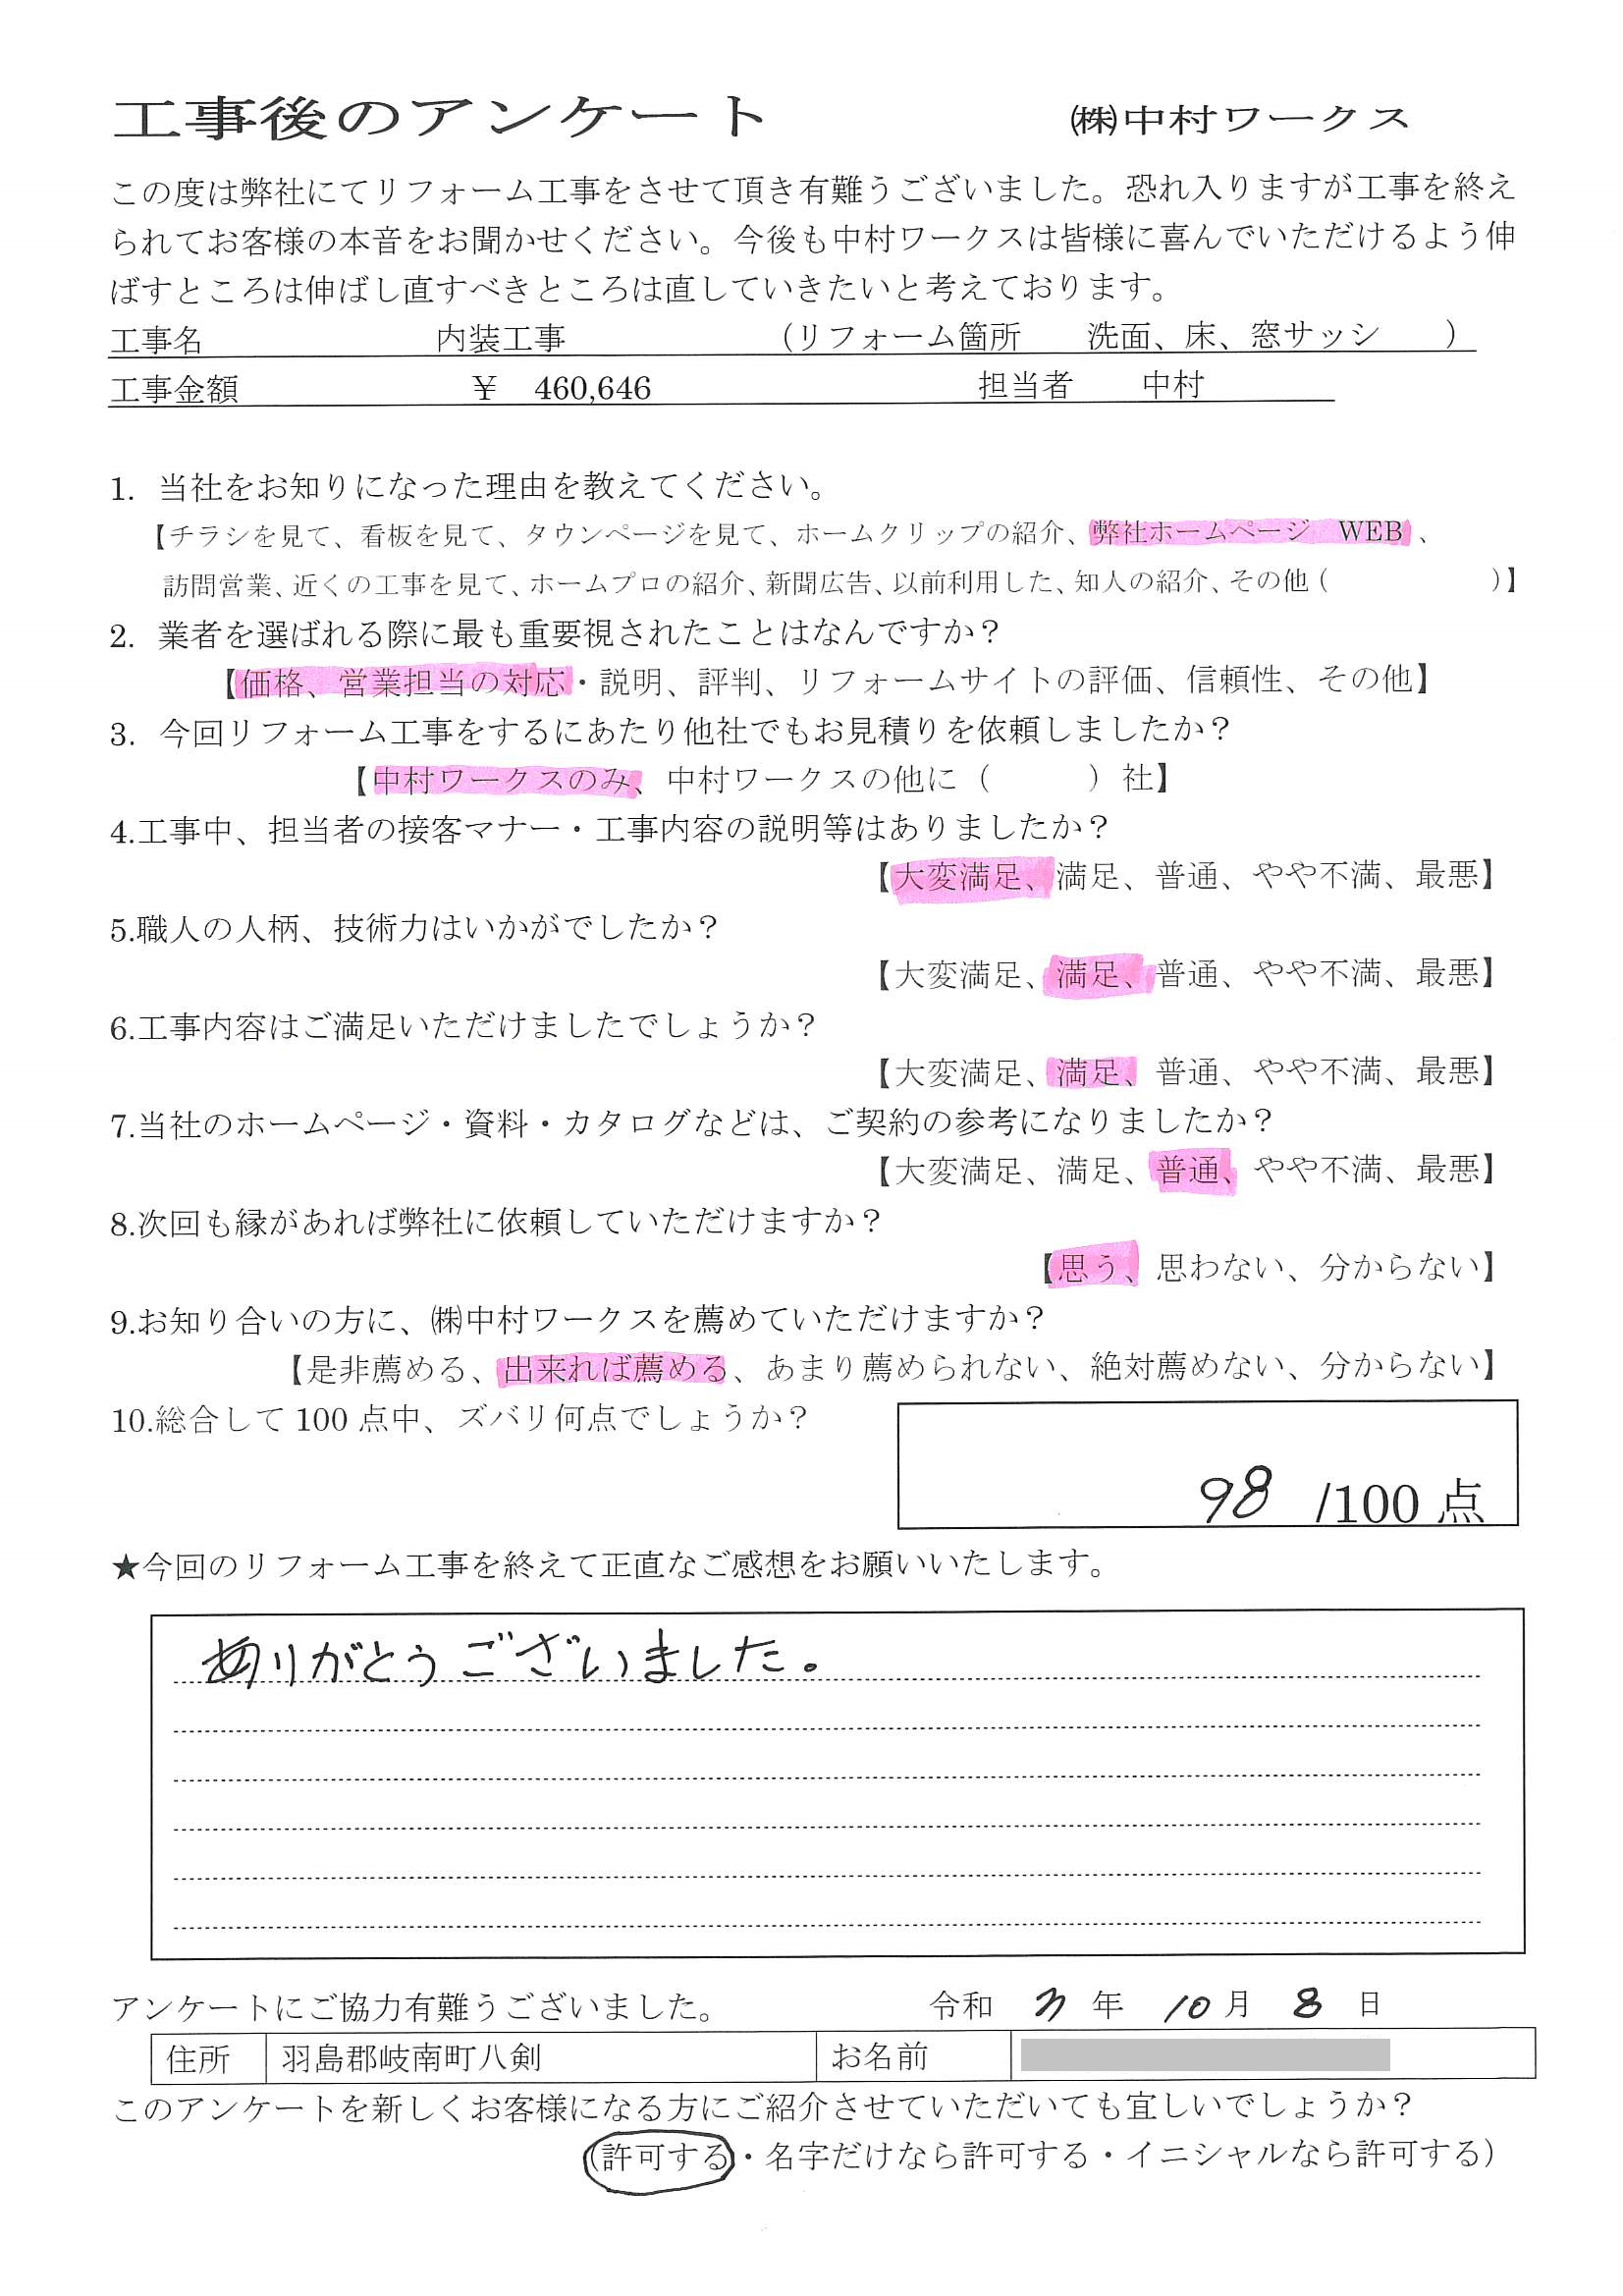 工事後のアンケート ㈱中村ワークス
この度は弊社にてリフォーム工事をさせて頂き有難うございました。恐れ入りますが工事を終え
られてお客様の本音をお聞かせください。今後も中村ワークスは皆様に喜んでいただけるよう伸
ばすところは伸ばし直すべきところは直していきたいと考えております。
工事名 内装工事 (リフォーム箇所 洗面、床、窓サッシ )
工事金額 ¥ 460,646 担当者 中村
1. 当社をお知りになった理由を教えてください。
【チラシを見て、看板を見て、タウンページを見て、ホームクリップの紹介、弊社ホームページ WEB 、
訪問営業、近くの工事を見て、ホームプロの紹介、新聞広告、以前利用した、知人の紹介、その他 ( )】
2. 業者を選ばれる際に最も重要視されたことはなんですか？
【価格、営業担当の対応・説明、評判、リフォームサイトの評価、信頼性、その他】
3. 今回リフォーム工事をするにあたり他社でもお見積りを依頼しましたか？
【中村ワークスのみ、中村ワークスの他に ( ) 社】
4.工事中、担当者の接客マナー・工事内容の説明等はありましたか？
【大変満足、満足、普通、やや不満、最悪】
5.職人の人柄、技術力はいかがでしたか？
【大変満足、満足、普通、やや不満、最悪】
6.工事内容はご満足いただけましたでしょうか？
【大変満足、満足、普通、やや不満、最悪】
7.当社のホームページ・資料・カタログなどは、ご契約の参考になりましたか？
【大変満足、満足、普通、やや不満、最悪】
8.次回も縁があれば弊社に依頼していただけますか？
【思う、思わない、分からない】
9.お知り合いの方に、㈱中村ワークスを薦めていただけますか？
【是非薦める、出来れば薦める、あまり薦められない、絶対薦めない、分からない】
10.総合して 100 点中、ズバリ何点でしょうか？
98 /100 点
★今回のリフォーム工事を終えて正直なご感想をお願いいたします。
ありがとうございました。
アンケートにご協力有難うございました。 令和 3 年 10 月 8 日
住所 羽島郡岐南町八剣 お名前
このアンケートを新しくお客様になる方にご紹介させていただいても宜しいでしょうか？
(許可する・名字だけなら許可する・イニシャルなら許可する)